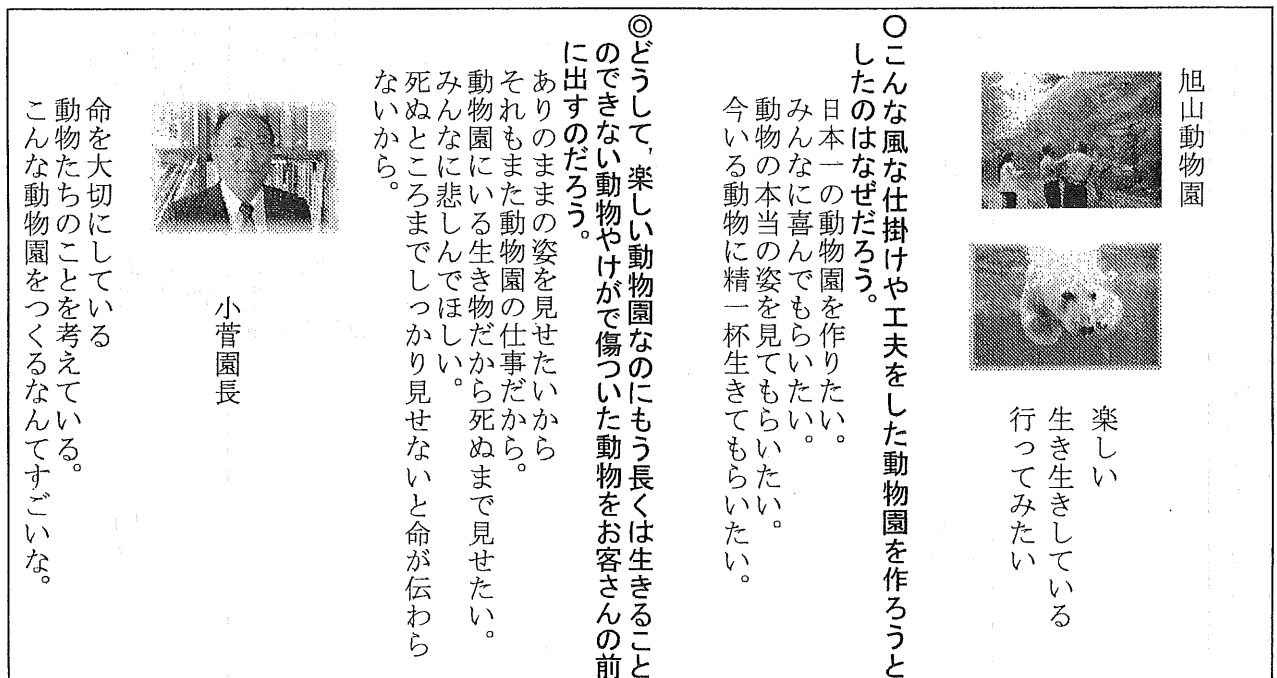 旭山動物園
楽しい
生き生きしている
行ってみたい
〇こんな風な仕掛けや工夫をした動物園を作ろうと
したのはなぜだろう。
日本一の動物園を作りたい。
みんなに喜んでもらいたい。
動物の本当の姿を見てもらいたい。
今いる動物に精一杯生きてもらいたい。
◎どうして，楽しい動物園なのにもう長くは生きること
のできない動物やけがで傷ついた動物をお客さんの前
に出すのだろう。
ありのままの姿を見せたいから
それもまた動物園の仕事だから。
動物園にいる生き物だから死ぬまで見せたい。
みんなに悲しんでほしい。
死ぬところまでしっかり見せないと命が伝わら
ないから。
小菅園長
命を大切にしている
動物たちのことを考えている。
こんな動物園をつくるなんてすごいな。